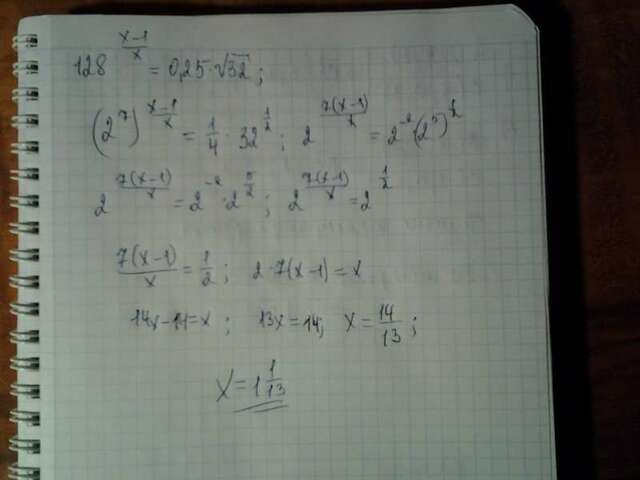 128^((x-1)/x) = 0,25·√32;
(2^7)^((x-1)/x) = 1/4 · 32^(1/2); 2^(7(x-1)/x) = 2^(-2)·(2^5)^(1/2)
2^(7(x-1)/x) = 2^(-2)·2^(5/2); 2^(7(x-1)/x) = 2^(1/2)
7(x-1)/x = 1/2; 2·7(x-1) = x
14x-14=x; 13x=14; x=14/13;
x=1 1/13